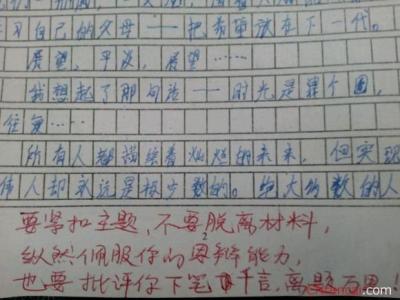 自己的父母——把希望放在下一代。
展望,平淡,展望……
我想起了那句话——时光是群个圆,
往复……
所有人都描绘着灿烂的未来,但实现
伟人却永远是极少数的。绝大多数的人
要紧扣主题,不要脱离材料,
纵然佩服你的思辩能力,
也要批评你下笔千言,离题万里!